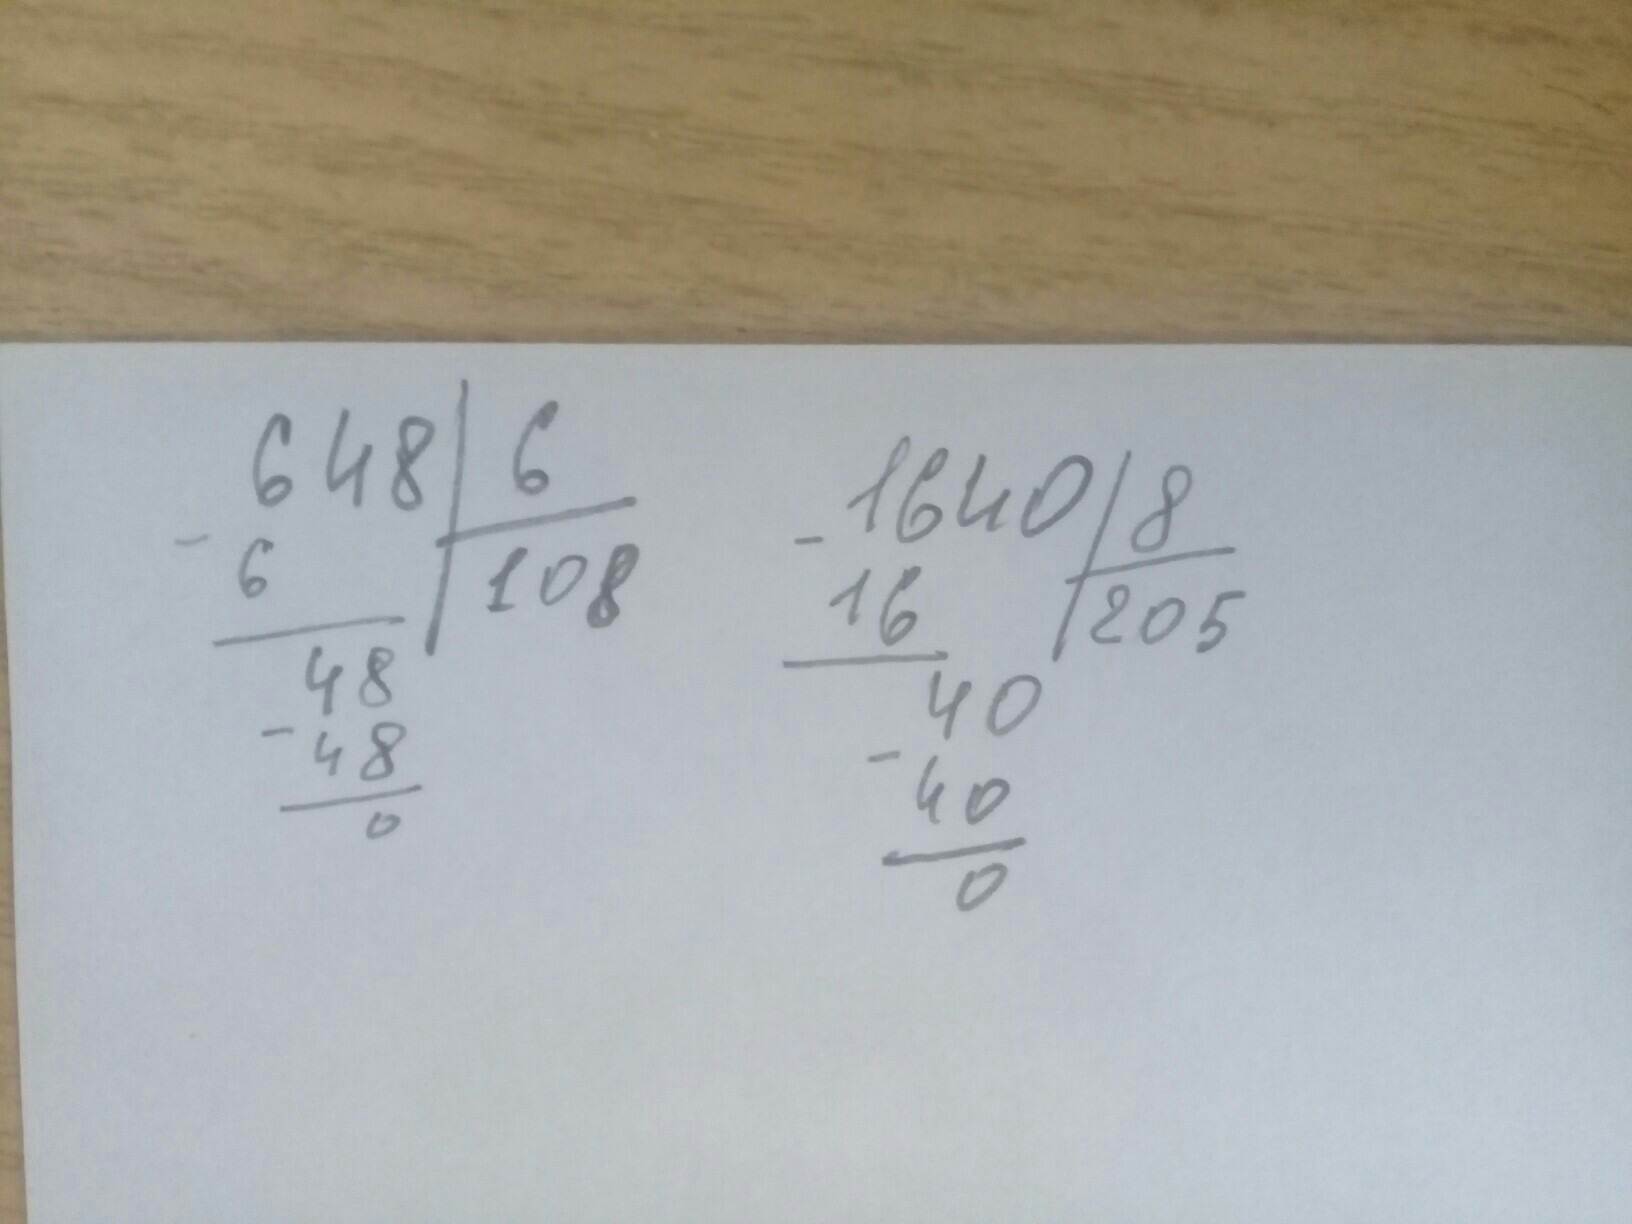 648 6
- 6 108
48
- 48
0
1640 8
- 16 205
40
- 40
0